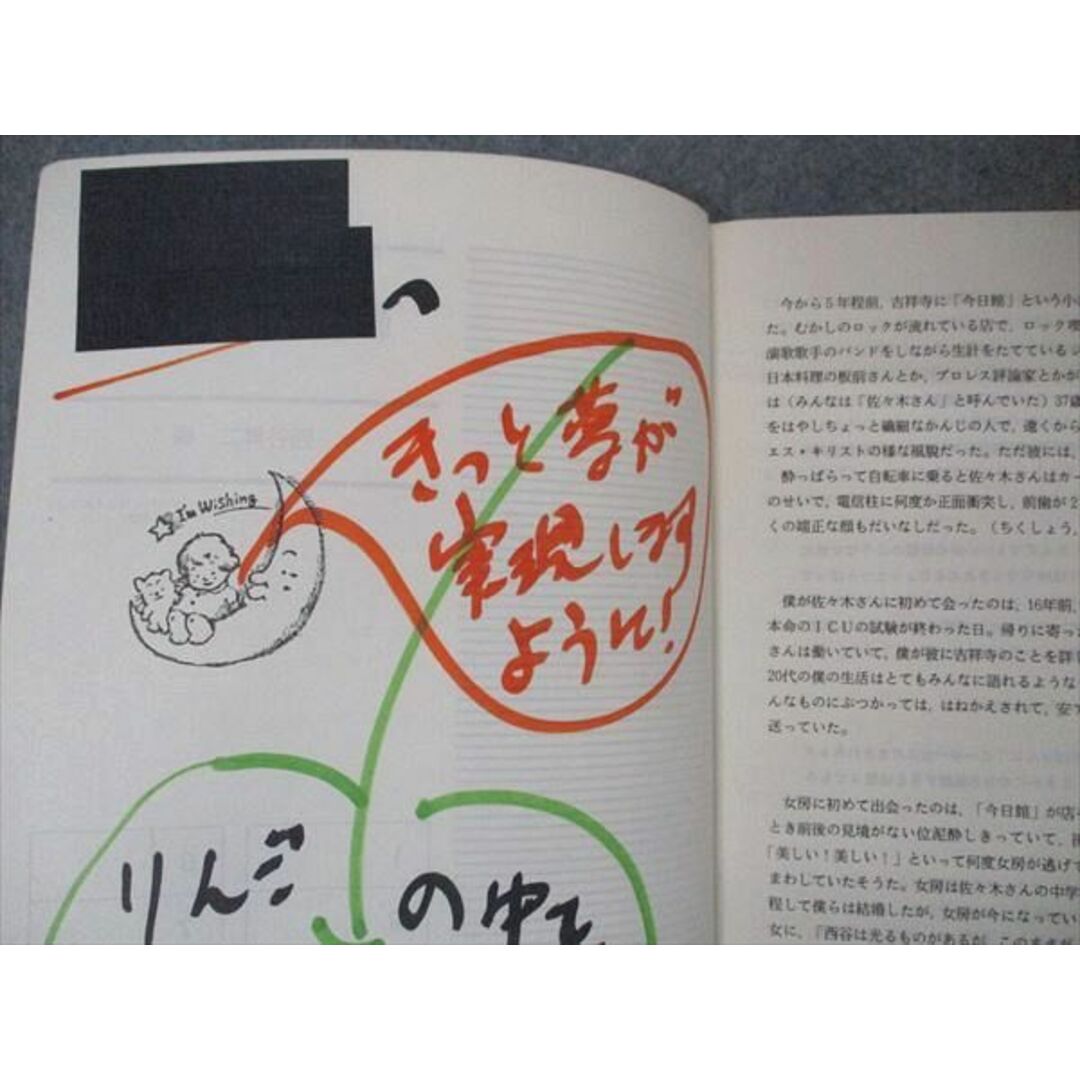 へ
きっと夢が
実現します
ように!
I'm Wishing
りんご
の中で
今から5年程前,吉祥寺に「今日館」という小
た。むかしのロックが流れている店で,ロック喫
演歌歌手のバンドをしながら生計をたてている
日本料理の板前さんとか,プロレス評論家とかが
は(みんなは「佐々木さん」と呼んでいた)37歳
をはやしちょっと繊細なかんじの人で,遠くから
エス・キリストの様な風貌だった。ただ彼には,
酔っぱらって自転車に乗ると佐々木さんはカー
のせいで,電信柱に何度か正面衝突し,前歯が2
くの端正な顔もだいなしだった。(ちくしょう,
僕が佐々木さんに初めて会ったのは,16年前,
本命のICUの試験が終わった日。帰りに寄っ
さんは働いていて,僕が彼に吉祥寺のことを詳し
20代の僕の生活はとてもみんなに語れるような
んなものにぶつかっては,はねかえされて,安
送っていた。
女房に初めて出会ったのは,「今日館」が店
とき前後の見境がない位泥酔しきっていて,
「美しい!美しい!」といって何度女房が逃げて
まわしていたそうだ。女房は佐々木さんの中学
程して僕らは結婚したが,女房が今になってい
女に,「西谷は光るものがあるが,このままが